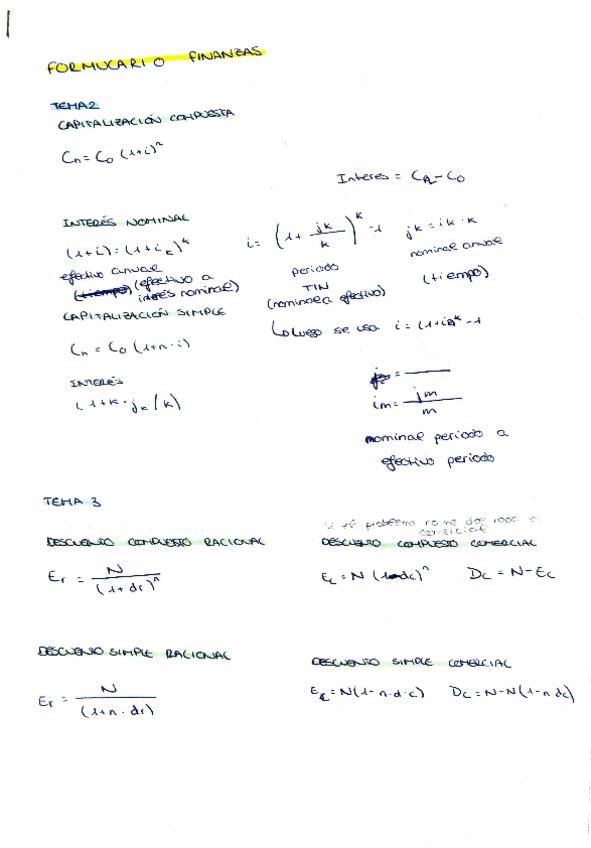 FORMULARIO FINANZAS
TEMA 2
CAPITALIZACIÓN COMPUESTA
Cn = C0 (1+i)^n
Interes = Cn - C0
INTERÉS NOMINAL
(1+i) = (1+i_k)^k
efectivo anual
(tiempo) (efectivo a interés nominal)
i = (1 + jk/k)^k - 1
periodo
TIN
(nominal a efectivo)
jk = ik · k
nominal anual
(tiempo)
Luego se usa i = (1+i)^k - 1
CAPITALIZACIÓN SIMPLE
Cn = C0 (1+n·i)
INTERÉS
(1+k·jk/k)
im = jm/m
nominal periodo a
efectivo periodo
TEMA 3
problema no me dice nada
comercial
DESCUENTO COMPUESTO RACIONAL
Er = N/(1+dr)^n
DESCUENTO COMPUESTO COMERCIAL
Ec = N (1-dc)^n Dc = N-Ec
DESCUENTO SIMPLE RACIONAL
Er = N/(1+n·dr)
DESCUENTO SIMPLE COMERCIAL
Ec = N(1-n·d·c) Dc = N-N(1-n dc)